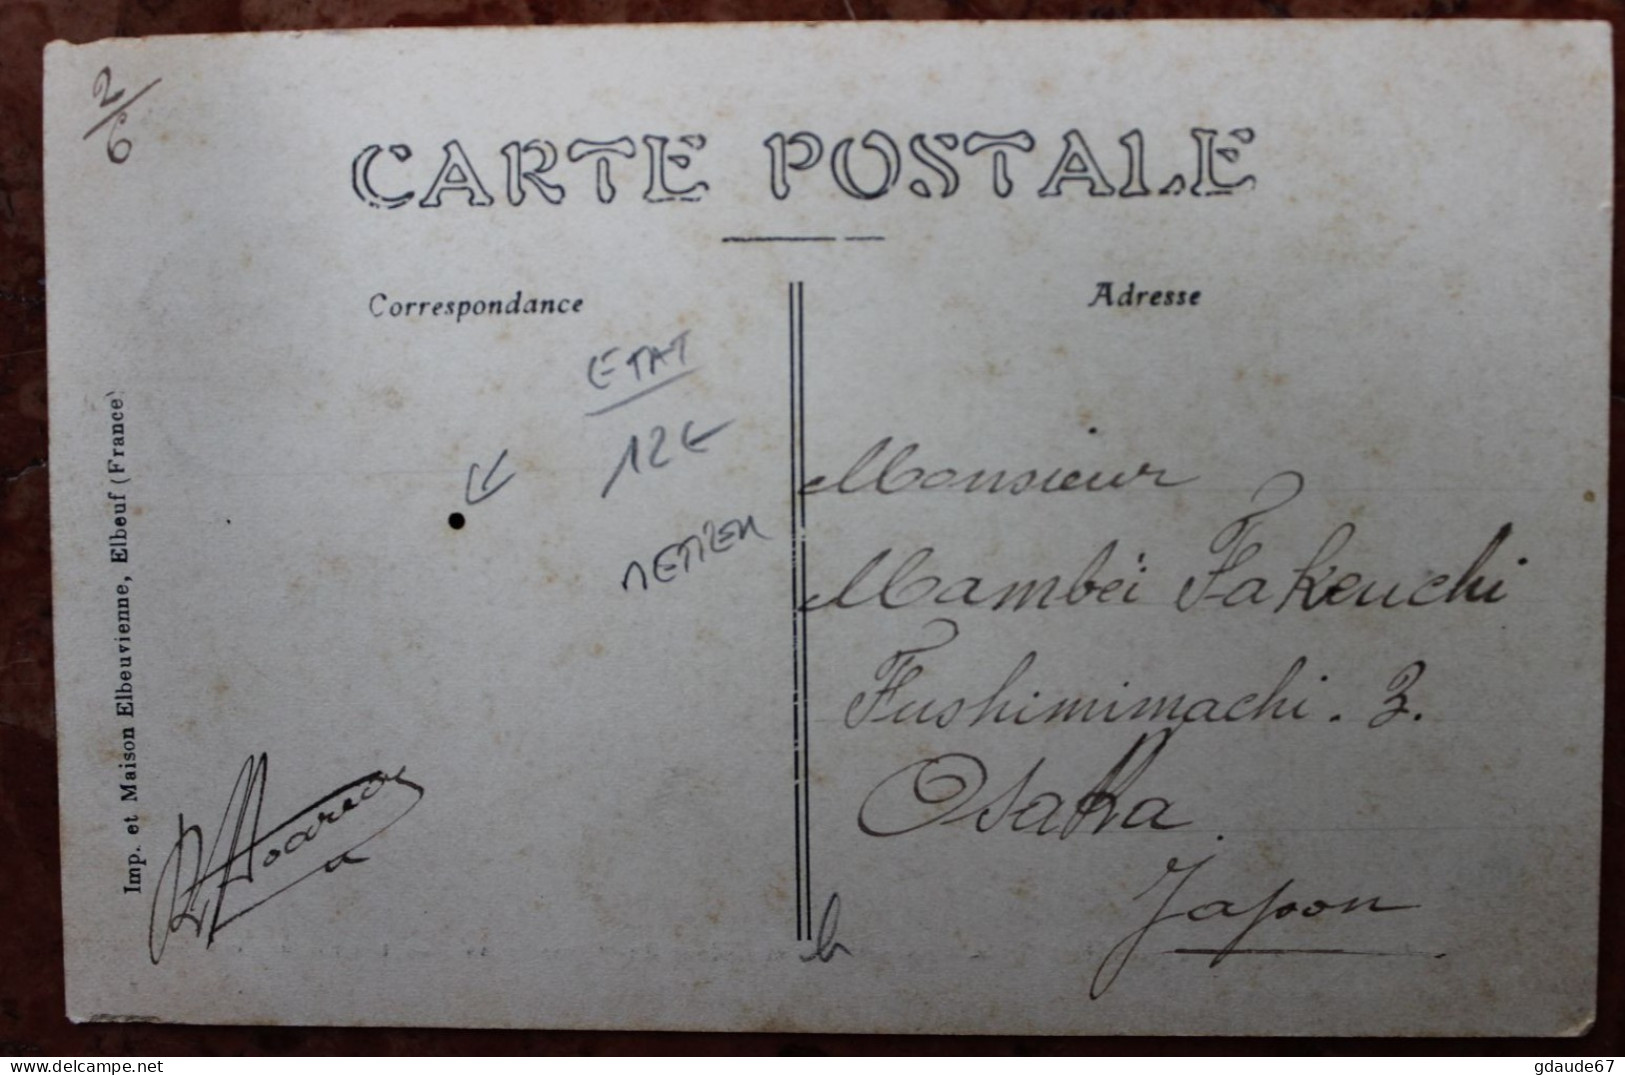 2/6
CARTE POSTALE
Correspondance
Adresse
ETAT
12€
METIER
Imp. et Maison Elbeuvienne, Elbeuf (France)
Monsieur
Mambeï Takeuchi
Fushimimachi. 3.
Osaka.
Japon
gdaude67